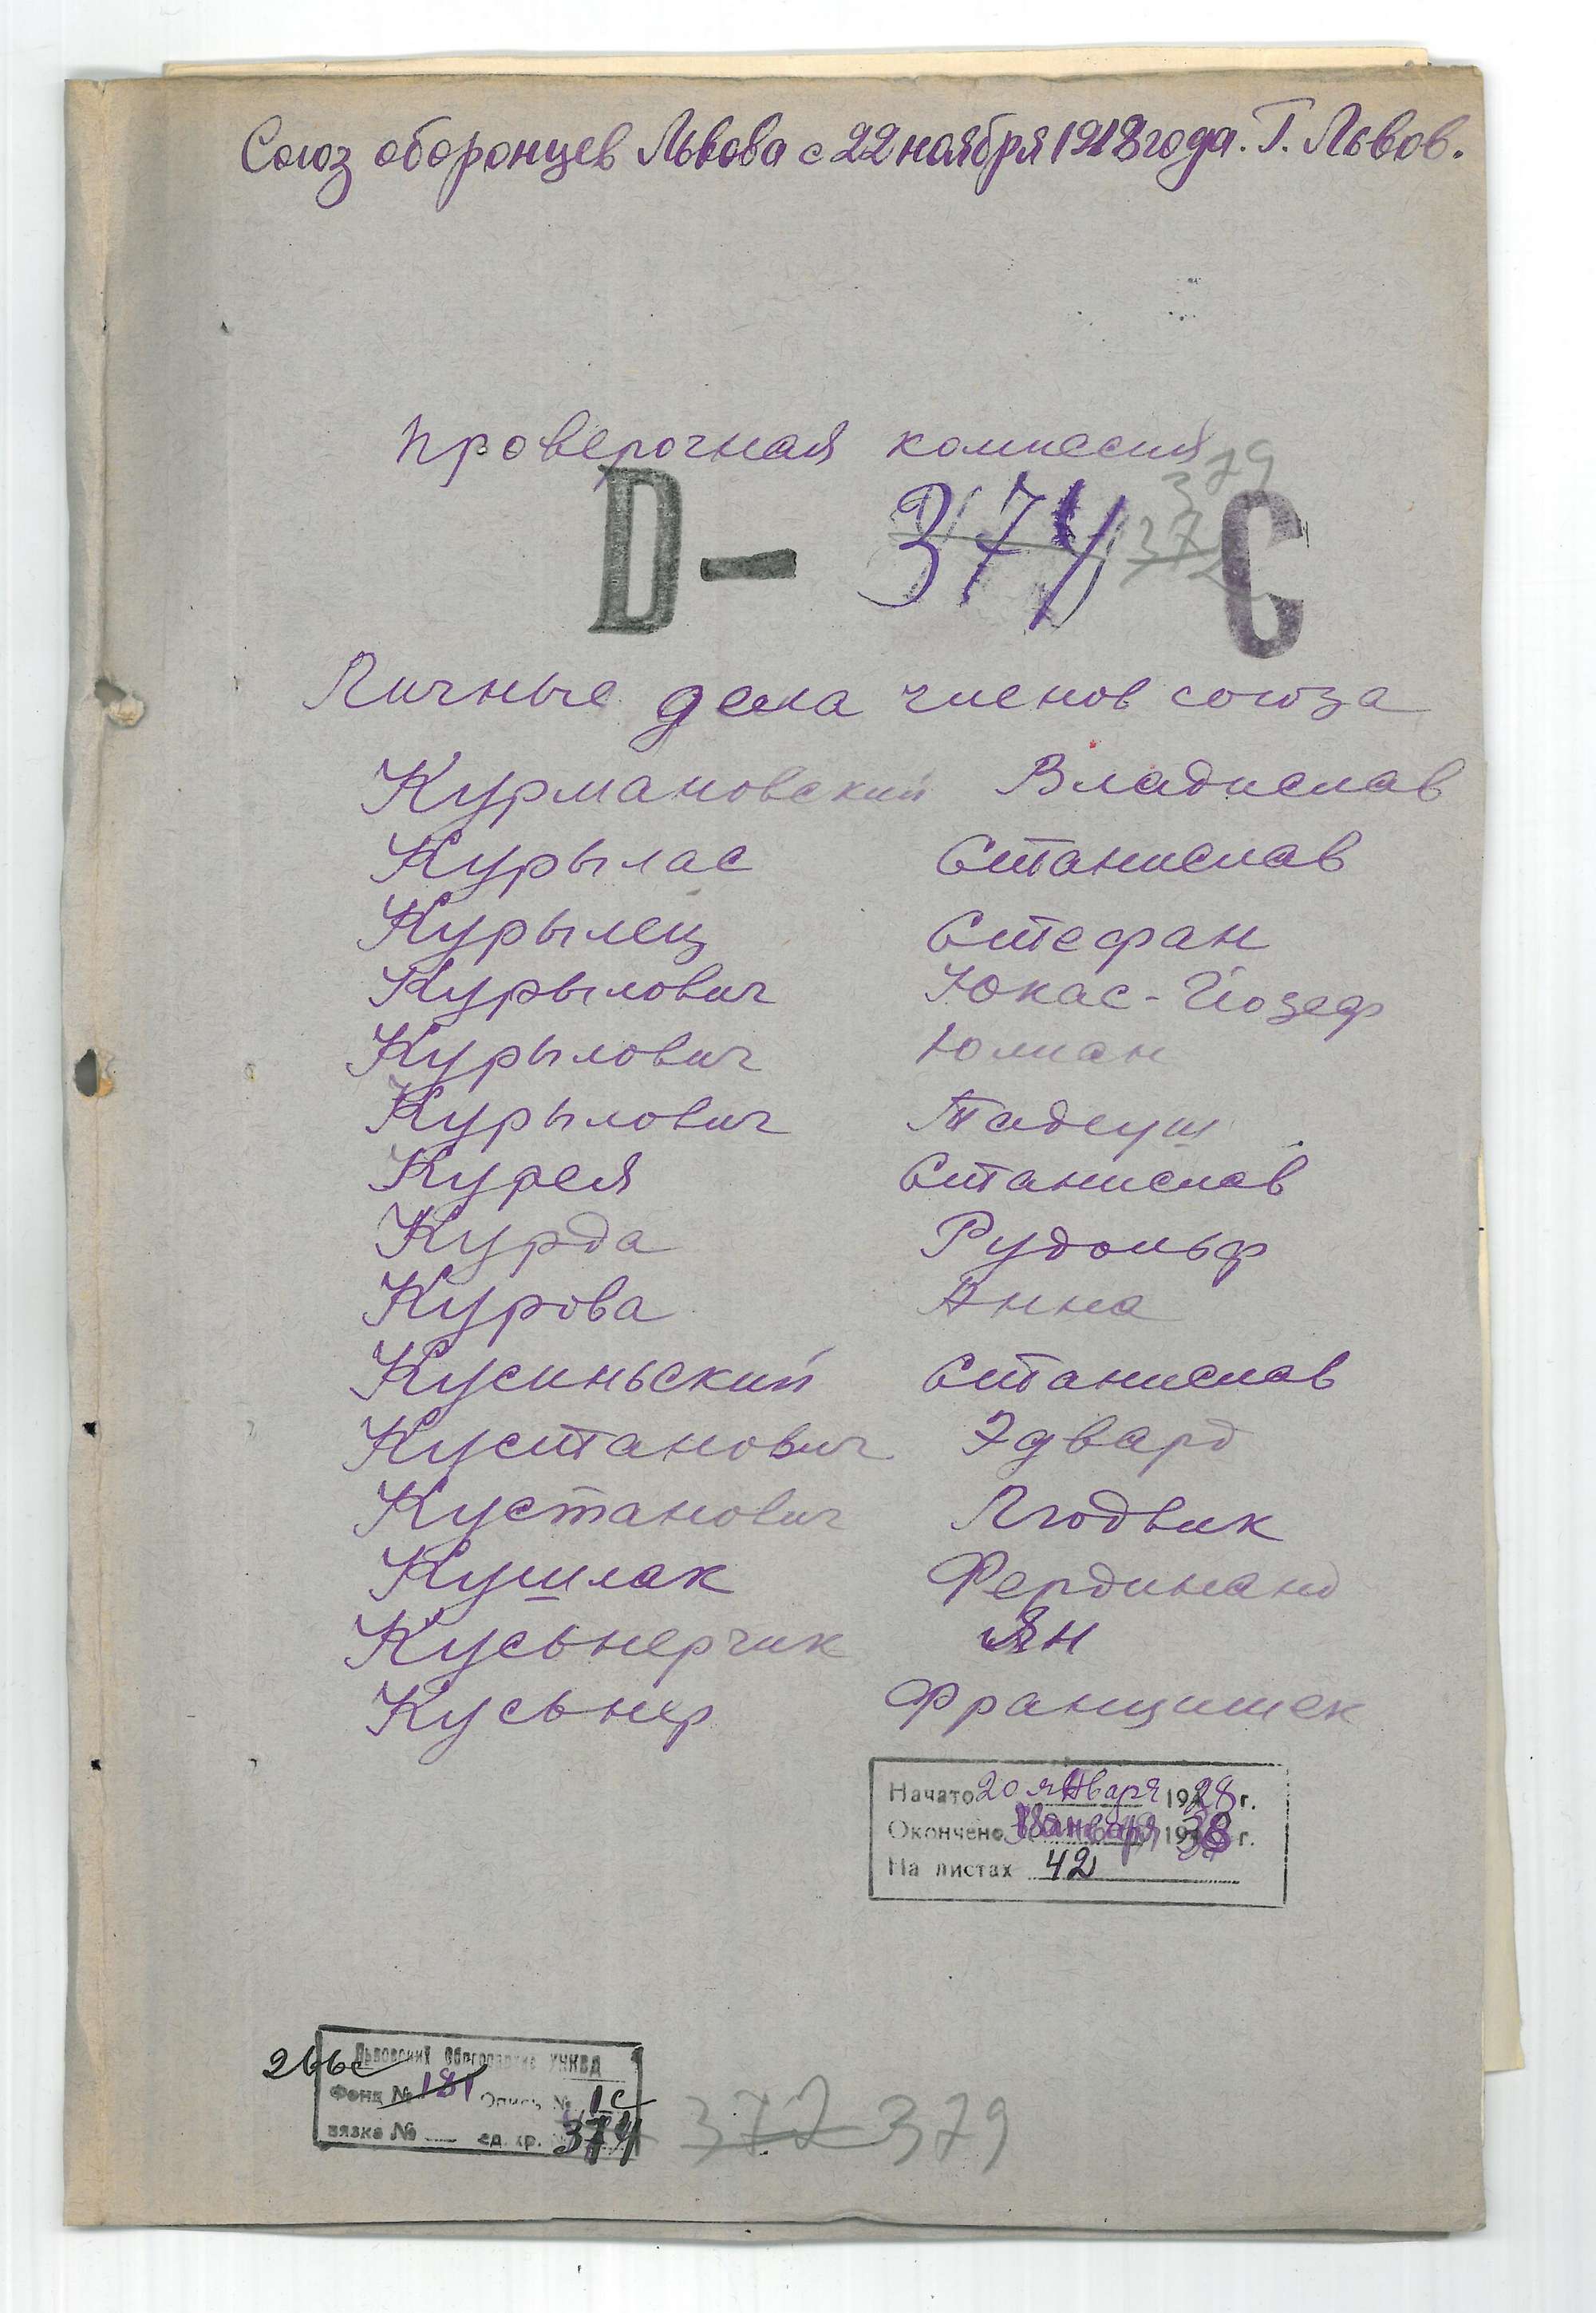 Союз оборонцев Львова с 22 ноября 1918 года. Г. Львов.
проверочная комиссия
379
D — 374 372 С
Личные дела членов союза
Курмановский Владислав
Курылас Станислав
Курылец Стефан
Курылович Юкас-Йозеф
Курылович Юлиан
Курылович Тадеуш
Курея Станислав
Курда Рудольф
Курова Анна
Кусиньский Станислав
Кустанович Эдвард
Кустанович Людвик
Кушлак Фердинанд
Кусьнерчик Ян
Кусьнер Францишек
Начато 20 января 1928 г.
Окончено января 1938 г.
На листах 42
266с Львовский Облгосархив УНКВД
Фонд № 181 Опись № 1с
вязка № ед. хр. 374
372 379